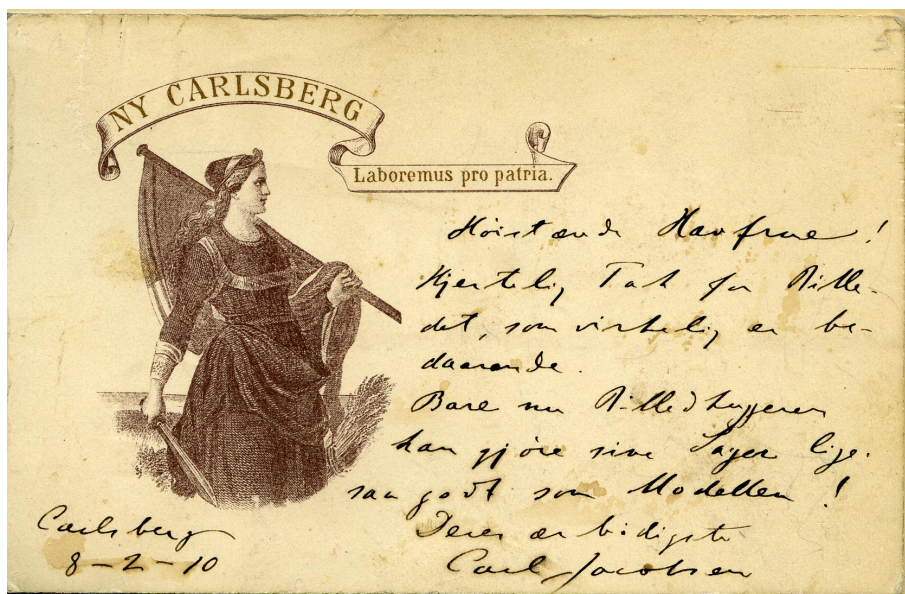 NY CARLSBERG
Laboremus pro patria.
Høistærede Havfrue!
Hjertelig Tak for Bille-
det, som virkelig er be-
daarende.
Bare nu Billedhuggeren
kan gjøre sine Sager lige-
saa godt som Modellen!
Deres ærbødigste
Carl Jacobsen
Carlsberg
8-2-10